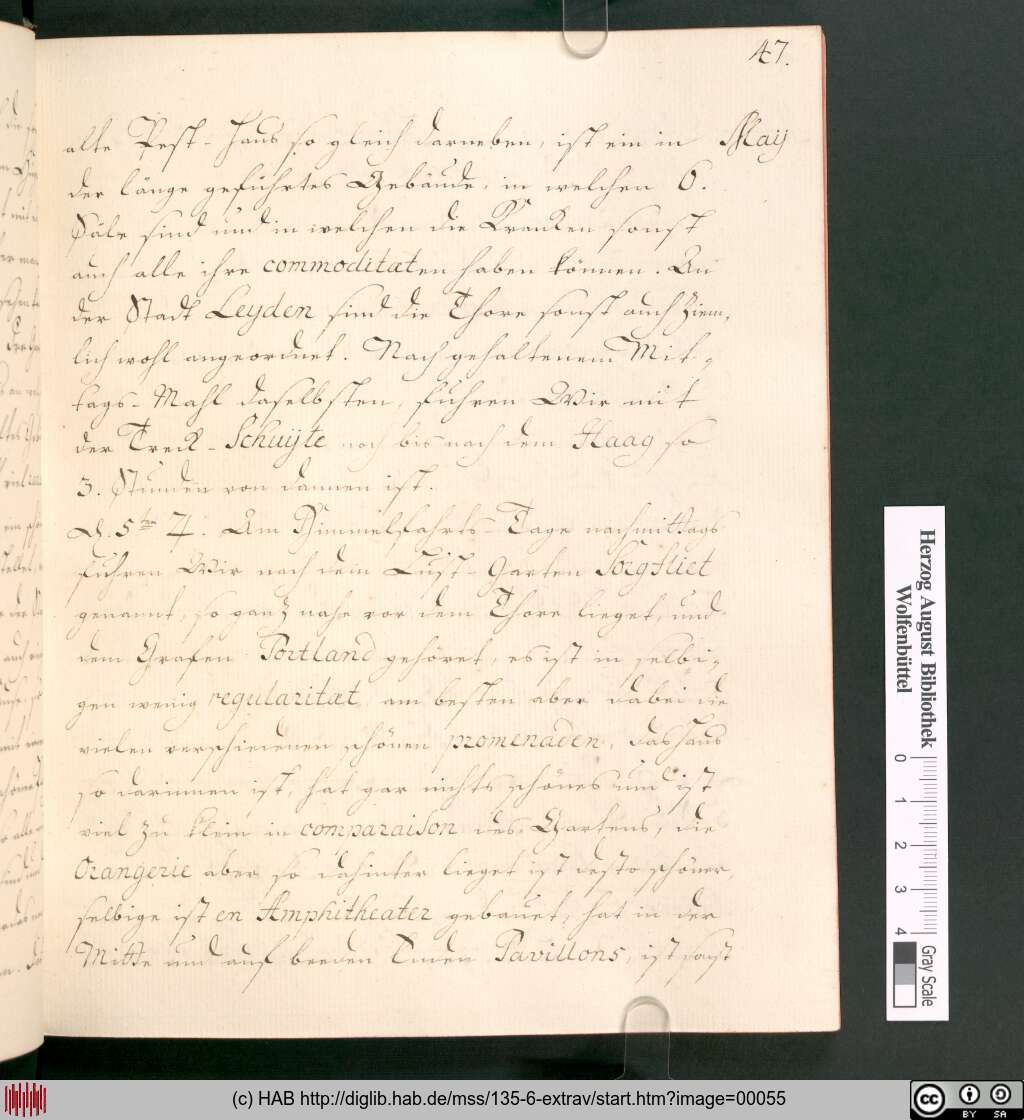 47.
Maij
alte Pest-Haus so gleich darneben, ist ein in
der länge geführtes Gebäude, in welchen 6.
Säle sind und in welchen die Krancken sonst
auch alle ihre commoditæten haben können. An
der Stadt Leyden sind die Thore sonst auch Ziem-
lich wohl angeordnet. Nach gehaltenem Mit-
tags-Mahl daselbsten, fuhren Wir mit
der Treck-Schuÿte noch bis nach dem Haag so
3. Stunden von dannen ist.
D. 5ten ♃. Am Himmelfahrts-Tage nachmittags
fuhren Wir nach dem Lust-Garten Sorgfliet
genannt, so ganz nahe vor dem Thore lieget, und
dem Grafen Portland gehöret, es ist in selbi-
gen wenig regularitæt, am besten aber dabei die
vielen verschiedenen schönen promenaden, das Haus
so darinnen ist, hat gar nichts schönes und ist
viel zu klein in comparaison des Gartens, die
Orangerie aber so dahinter lieget ist desto schöner,
selbige ist en Amphitheater gebauet, hat in der
Mitte und auf beeden Enden Pavillons, ist sonst
Herzog August Bibliothek
Wolfenbüttel
0 1 2 3 4
Gray Scale
(c) HAB http://diglib.hab.de/mss/135-6-extrav/start.htm?image=00055
cc BY SA